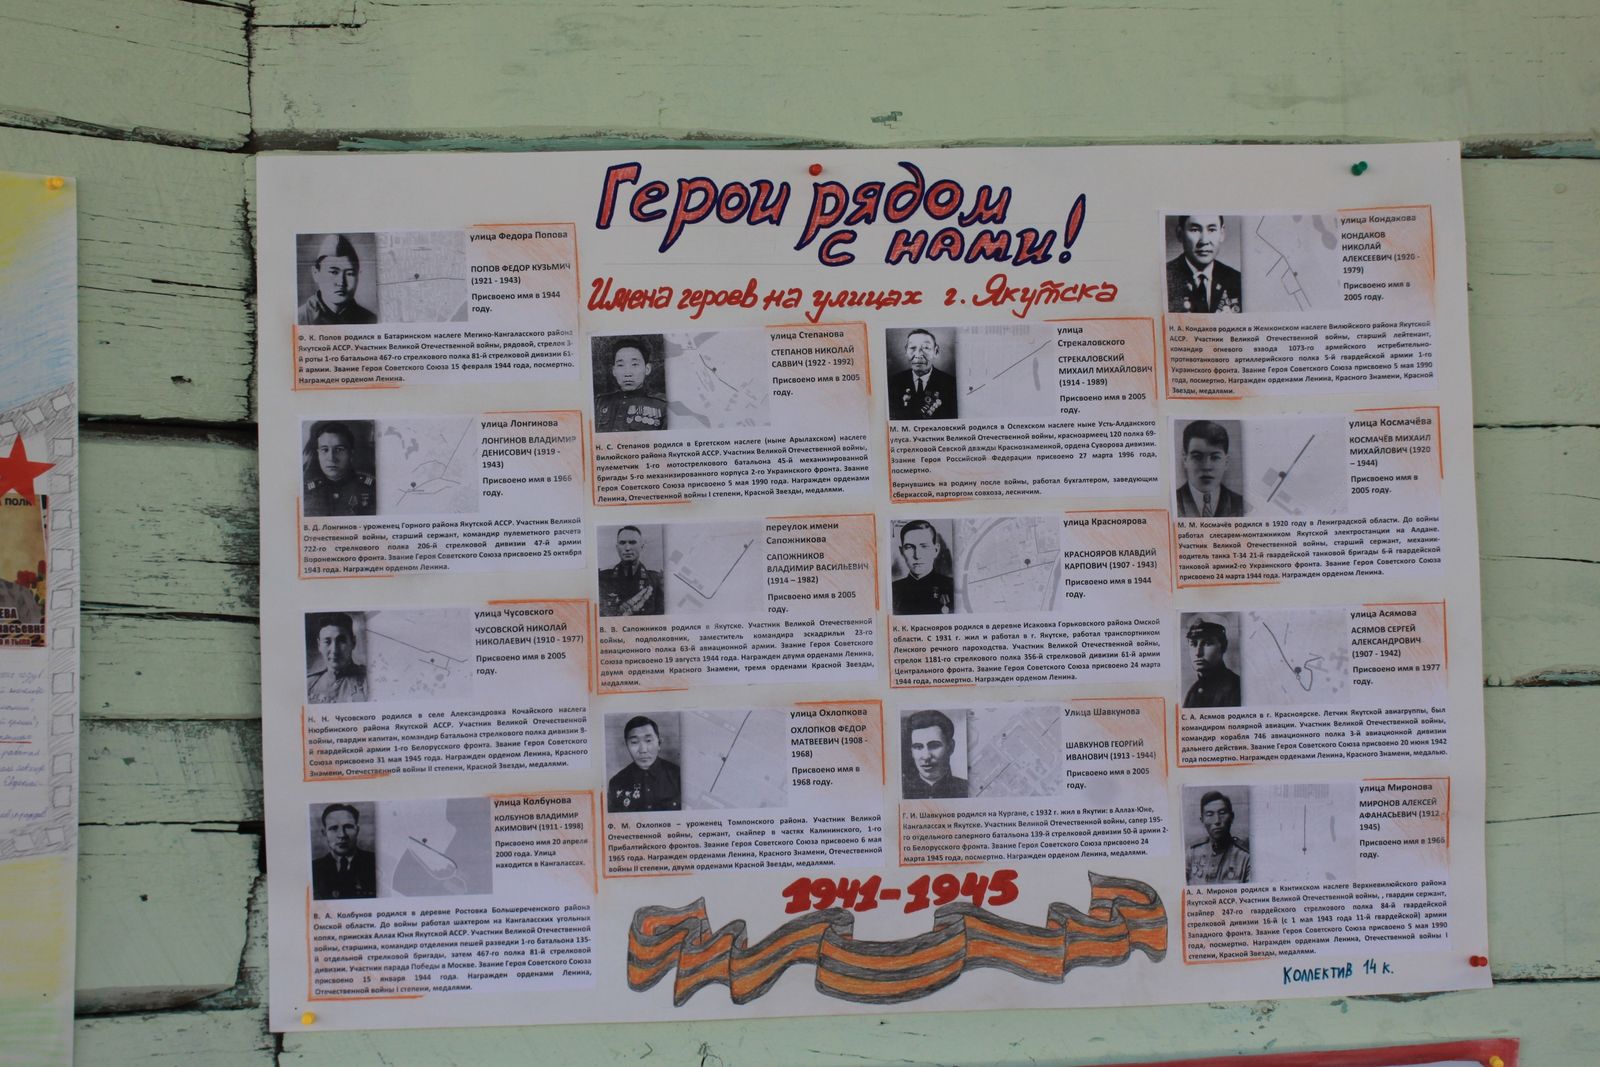 Герои рядом
с нами!
Имена героев на улицах г. Якутска
улица Федора Попова
ПОПОВ ФЕДОР КУЗЬМИЧ
(1921 - 1943)
Присвоено имя в 1944
году.
Ф. К. Попов родился в Батаринском наслеге Мегино-Кангаласского района
Якутской АССР. Участник Великой Отечественной войны, рядовой, стрелок 3-
й роты 1-го батальона 467-го стрелкового полка 81-й стрелковой дивизии 61-
й армии. Звание Героя Советского Союза 15 февраля 1944 года, посмертно.
Награжден орденом Ленина.
улица Лонгинова
ЛОНГИНОВ ВЛАДИМИР
ДЕНИСОВИЧ (1919 -
1943)
Присвоено имя в 1966
году.
В. Д. Лонгинов - уроженец Горного района Якутской АССР. Участник Великой
Отечественной войны, старший сержант, командир пулеметного расчета
722-го стрелкового полка 206-й стрелковой дивизии 47-й армии
Воронежского фронта. Звание Героя Советского Союза присвоено 25 октября
1943 года. Награжден орденом Ленина.
улица Чусовского
ЧУСОВСКОЙ НИКОЛАЙ
НИКОЛАЕВИЧ (1910 - 1977)
Присвоено имя в 2005
году.
Н. Н. Чусовского родился в селе Александровка Кочайского наслега
Нюрбинского района Якутской АССР. Участник Великой Отечественной
войны, гвардии капитан, командир батальона стрелкового полка дивизии 8-
й гвардейской армии 1-го Белорусского фронта. Звание Героя Советского
Союза присвоено 31 мая 1945 года. Награжден орденом Ленина, Красного
Знамени, Отечественной войны II степени, Красной Звезды, медалями.
улица Колбунова
КОЛБУНОВ ВЛАДИМИР
АКИМОВИЧ (1911 - 1998)
Присвоено имя 20 апреля
2000 года. Улица
находится в Кангалассах.
В. А. Колбунов родился в деревне Ростовка Большереченского района
Омской области. До войны работал шахтером на Кангаласских угольных
копях, приисках Аллах Юня Якутской АССР. Участник Великой Отечественной
войны, старшина, командир отделения пешей разведки 1-го батальона 135-
й отдельной стрелковой бригады, затем 467-го полка 81-й стрелковой
дивизии. Участник парада Победы в Москве. Звание Героя Советского Союза
присвоено 15 января 1944 года. Награжден орденами Ленина,
Отечественной войны I степени, медалями.
улица Степанова
СТЕПАНОВ НИКОЛАЙ
САВВИЧ (1922 - 1992)
Присвоено имя в 2005
году.
Н. С. Степанов родился в Ергетском наслеге (ныне Арылахском) наслеге
Вилюйского района Якутской АССР. Участник Великой Отечественной войны,
пулеметчик 1-го мотострелкового батальона 45-й механизированной
бригады 5-го механизированного корпуса 2-го Украинского фронта. Звание
Героя Советского Союза присвоено 5 мая 1990 года. Награжден орденами
Ленина, Отечественной войны I степени, Красной Звезды, медалями.
переулок имени
Сапожникова
САПОЖНИКОВ
ВЛАДИМИР ВАСИЛЬЕВИЧ
(1914 – 1982)
Присвоено имя в 2005
году.
В. В. Сапожников родился в Якутске. Участник Великой Отечественной
войны, подполковник, заместитель командира эскадрильи 23-го
авиационного полка 63-й авиационной армии. Звание Героя Советского
Союза присвоено 19 августа 1944 года. Награжден двумя орденами Ленина,
двумя орденами Красного Знамени, тремя орденами Красной Звезды,
медалями.
улица Охлопкова
ОХЛОПКОВ ФЕДОР
МАТВЕЕВИЧ (1908 -
1968)
Присвоено имя в
1968 году.
Ф. М. Охлопков – уроженец Томпонского района. Участник Великой
Отечественной войны, сержант, снайпер в частях Калининского, 1-го
Прибалтийского фронтов. Звание Героя Советского Союза присвоено 6 мая
1965 года. Награжден орденами Ленина, Красного Знамени, Отечественной
войны II степени, двумя орденами Красной Звезды, медалями.
улица
Стрекаловского
СТРЕКАЛОВСКИЙ
МИХАИЛ МИХАЙЛОВИЧ
(1914 - 1989)
Присвоено имя в 2005
году.
М. М. Стрекаловский родился в Оспехском наслеге ныне Усть-Алданского
улуса. Участник Великой Отечественной войны, красноармеец 120 полка 69-
й стрелковой Севской дважды Краснознаменной, ордена Суворова дивизии.
Звание Героя Российской Федерации присвоено 27 марта 1996 года,
посмертно.
Вернувшись на родину после войны, работал бухгалтером, заведующим
сберкассой, парторгом совхоза, лесничим.
улица Красноярова
КРАСНОЯРОВ КЛАВДИЙ
КАРПОВИЧ (1907 - 1943)
Присвоено имя в 1944
году.
К. К. Краснояров родился в деревне Исаковка Горьковского района Омской
области. С 1931 г. жил и работал в г. Якутске, работал транспортником
Ленского речного пароходства. Участник Великой Отечественной войны,
стрелок 1181-го стрелкового полка 356-й стрелковой дивизии 61-й армии
Центрального фронта. Звание Героя Советского Союза присвоено 24 марта
1944 года, посмертно. Награжден орденом Ленина.
Улица Шавкунова
ШАВКУНОВ ГЕОРГИЙ
ИВАНОВИЧ (1913 - 1944)
Присвоено имя в 2005
году.
Г. И. Шавкунов родился на Кургане, с 1932 г. жил в Якутии: в Аллах-Юне,
Кангалассах и Якутске. Участник Великой Отечественной войны, сапер 195-
го отдельного саперного батальона 139-й стрелковой дивизии 50-й армии 2-
го Белорусского фронта. Звание Героя Советского Союза присвоено 24
марта 1945 года, посмертно. Награжден орденом Ленина, медалями.
улица Кондакова
КОНДАКОВ
НИКОЛАЙ
АЛЕКСЕЕВИЧ (1920 -
1979)
Присвоено имя в
2005 году.
Н. А. Кондаков родился в Жемконском наслеге Вилюйского района Якутской
АССР. Участник Великой Отечественной войны, старший лейтенант,
командир огневого взвода 1073-го армейского истребительно-
противотанкового артиллерийского полка 5-й гвардейской армии 1-го
Украинского фронта. Звание Героя Советского Союза присвоено 5 мая 1990
года, посмертно. Награжден орденами Ленина, Красного Знамени, Красной
Звезды, медалями.
улица Космачёва
КОСМАЧЁВ МИХАИЛ
МИХАЙЛОВИЧ (1920
– 1944)
Присвоено имя в
2005 году.
М. М. Космачёв родился в 1920 году в Ленинградской области. До войны
работал слесарем-монтажником Якутской электростанции на Алдане.
Участник Великой Отечественной войны, старший сержант, механик-
водитель танка Т-34 21-й гвардейской танковой бригады 6-й гвардейской
танковой армии2-го Украинского фронта. Звание Героя Советского Союза
присвоено 24 марта 1944 года. Награжден орденом Ленина.
улица Асямова
АСЯМОВ СЕРГЕЙ
АЛЕКСАНДРОВИЧ
(1907 - 1942)
Присвоено имя в 1977
году.
С. А. Асямов родился в г. Красноярске. Летчик Якутской авиагруппы, был
командиром полярной авиации. Участник Великой Отечественной войны,
командир корабля 746 авиационного полка 3-й авиационной дивизии
дальнего действия. Звание Героя Советского Союза присвоено 20 июня 1942
года посмертно. Награжден орденами Ленина, Красного Знамени, медалью.
улица Миронова
МИРОНОВ АЛЕКСЕЙ
АФАНАСЬЕВИЧ (1912 -
1945)
Присвоено имя в 1966
году.
А. А. Миронов родился в Кэнтикском наслеге Верхневилюйского района
Якутской АССР. Участник Великой Отечественной войны, , гвардии сержант,
снайпер 247-го гвардейского стрелкового полка 84-й гвардейской
стрелковой дивизии 16-й (с 1 мая 1943 года 11-й гвардейской) армии
Западного фронта. Звание Героя Советского Союза присвоено 5 мая 1990
года, посмертно. Награжден орденами Ленина, Отечественной войны I
степени, Красной Звезды, медалями.
1941-1945
КОЛЛЕКТИВ 14 к.